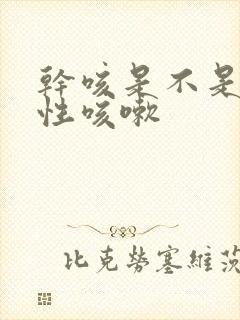 幹咳是不是
性咳嗽
比克勞塞維茨